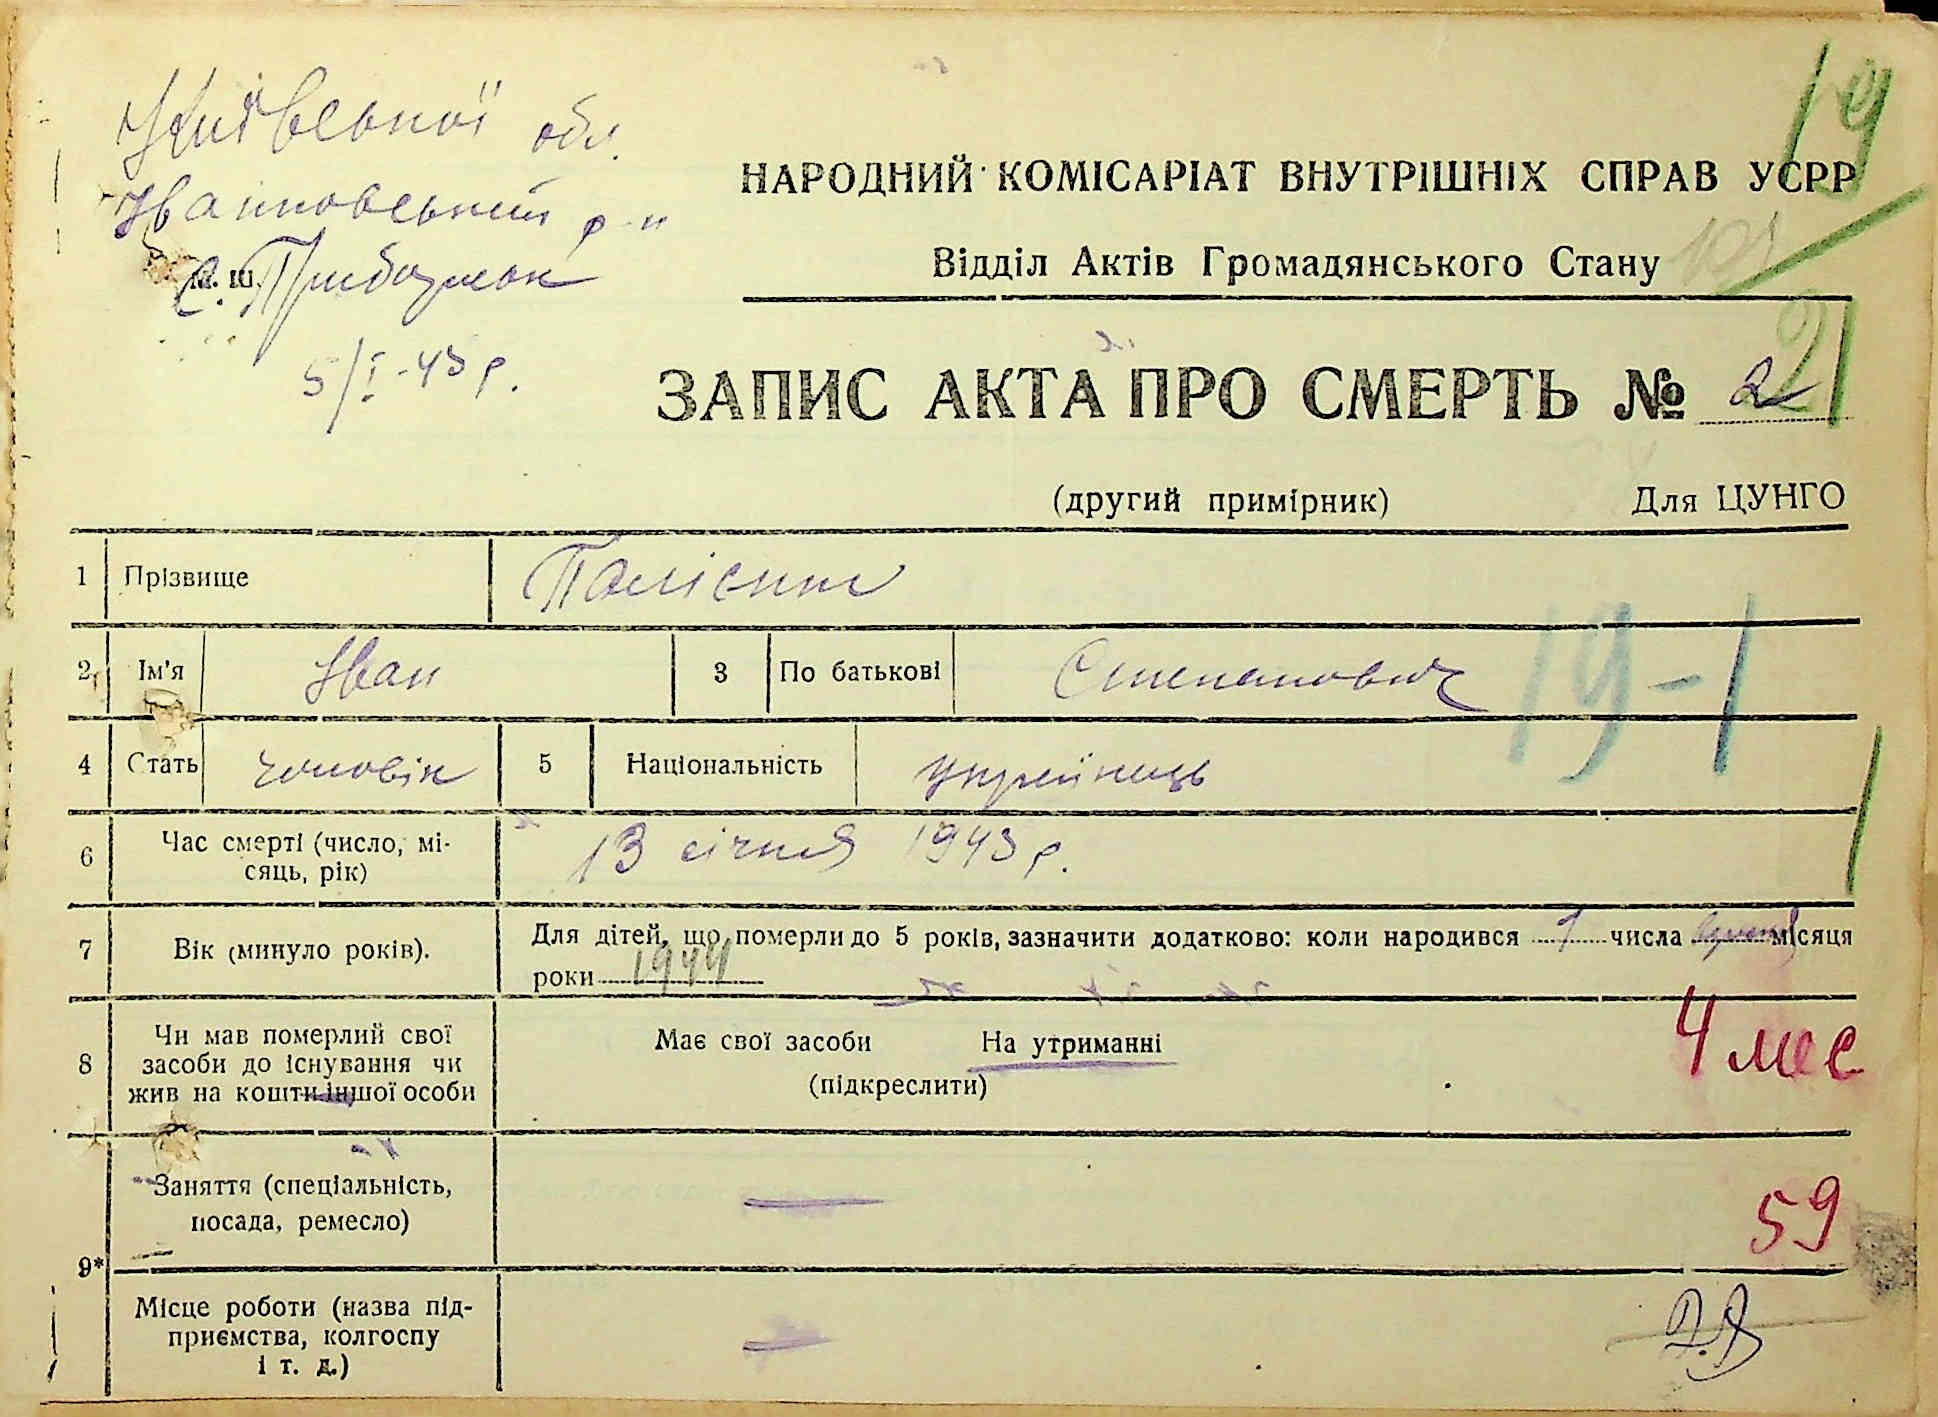 Київської обл.
Іванковський р-н
М. Ш.
с.
5/I-43 р.
НАРОДНИЙ КОМІСАРІАТ ВНУТРІШНІХ СПРАВ УСРР
Відділ Актів Громадянського Стану
ЗАПИС АКТА ПРО СМЕРТЬ № 2
(другий примірник) Для ЦУНГО
19
21
1 Прізвище
2 Ім'я Іван 3 По батькові Степанович
19-1
4 Стать чоловік 5 Національність українець
6 Час смерті (число, мі-
сяць, рік) 13 січня 1943 р.
7 Вік (минуло років). Для дітей, що померли до 5 років, зазначити додатково: коли народився 1 числа місяця
роки 1944
8 Чи мав померлий свої
засоби до існування чи
жив на кошти іншої особи
Має свої засоби На утриманні
(підкреслити)
4 мес
9* Заняття (спеціальність,
посада, ремесло) —
59
Місце роботи (назва під-
приємства, колгоспу
і т. д.) —